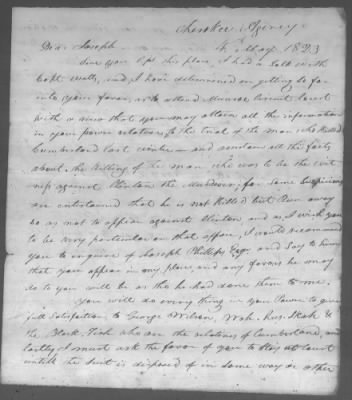 Cherokee Agency
4th May 1823
Dear Joseph
Since you left this place, I had a talk with
Capt Wells, and I have determined on getting so far
into your favor, as to attend Monroe Circuit Court
with a view that you may attain all the information
in your power relative, to the trial of the man who killed
Cumberland last winter — and ascertain all the facts
about the killing of the man who was to be the wit
ness against Clinton the Murderer, for some suspicions
are entertained that he is not killed but Run away
so as not to appear against Clinton, and as I wish you
to be very particular on that affair, I would recommend
you to enquire of Joseph Phillips Esqr. and Say to him
that you appear in my place, and any favors he may
do to you will be as tho he had done them to me.
You will do every thing in your Power to give
full Satisfaction to George Wilson, Wah. hus. &
the Black Fish who are the relatives of Cumberland, and
lastly I must ask the favor of you to Stay at Court
untill the Suit is disposed of in some way or other